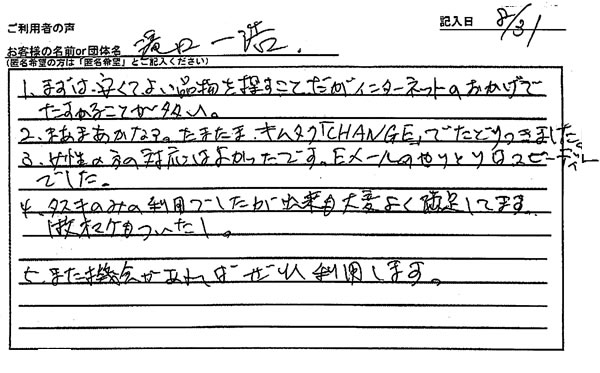 ご利用者の声
記入日 8/31
お客様の名前or団体名 滝口 一浩.
(匿名希望の方は「匿名希望」とご記入ください)
1. まずは、安くてよい品物を探すことだがインターネットのおかげで
たすかることが多い。
2. まあまあかなぁ。たまたま、キムタク「CHANGE」でたどりつきました。
3. 女性の方の対応はよかったです。Eメールのやりとりもスピーディ
でした。
4. タスキのみの利用でしたが出来も大変よく満足してます。
も ついたし。
5. また機会があればぜひ利用します。